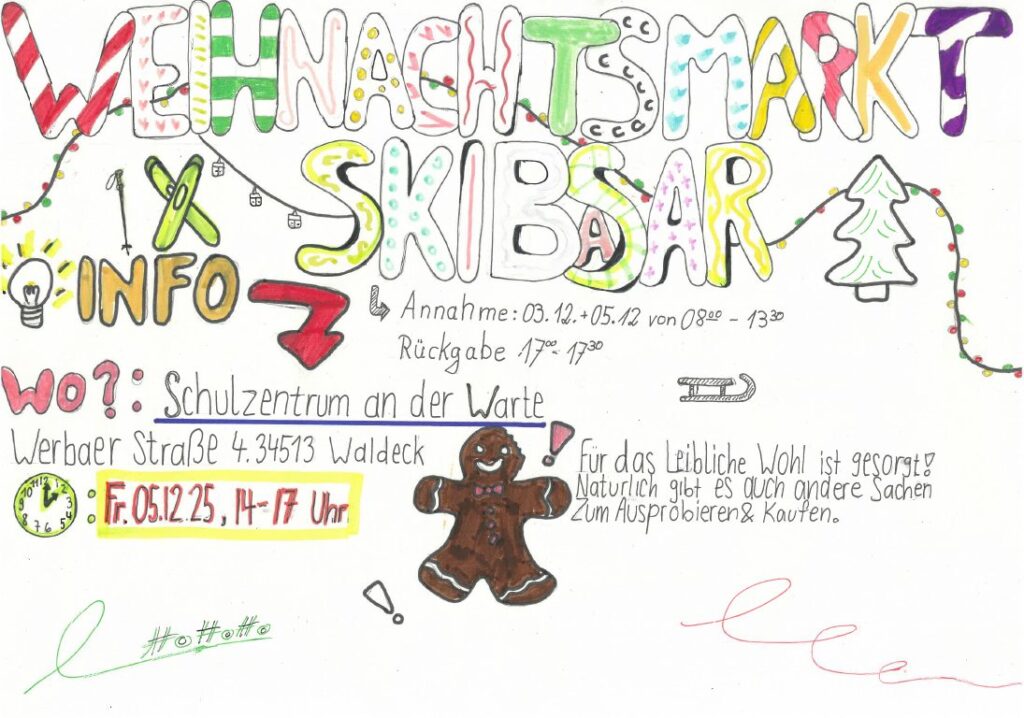 WEIHNACHTSMARKT
SKIBASAR
INFO
Annahme: 03.12.+05.12 von 08⁰⁰ - 13³⁰
Rückgabe 17⁰⁰- 17³⁰
WO?:
Schulzentrum an der Warte
Werbaer Straße 4. 34513 Waldeck
Für das Leibliche Wohl ist gesorgt!
Naturlich gibt es auch andere Sachen
Zum Ausprobieren & Kaufen.
: Fr. 05.12.25, 14-17 Uhr
#o#o#o